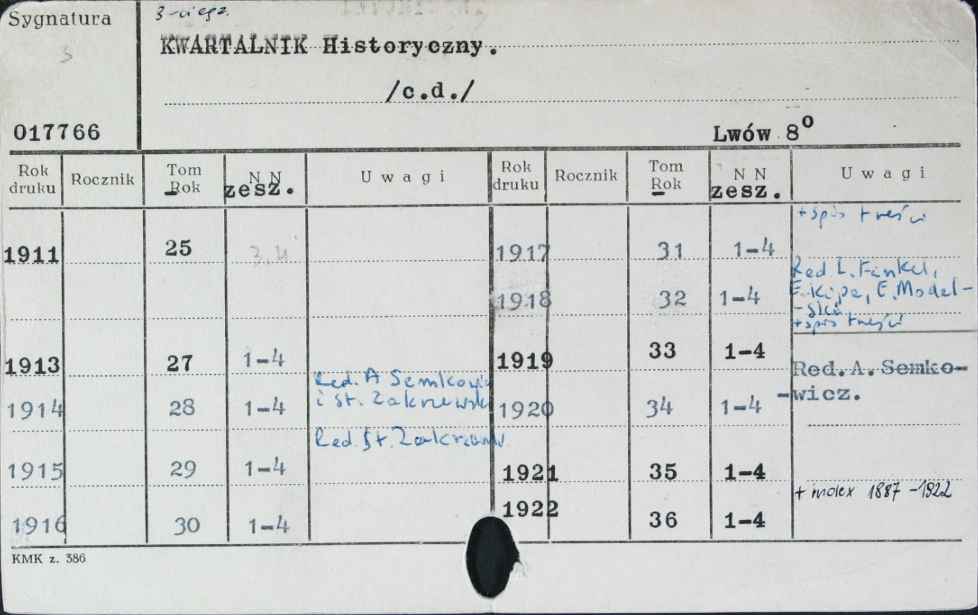 Sygnatura
3
KWARTALNIK Historyczny.
/c.d./
017766
Lwów 8o
Rok druku Rocznik Tom Rok N N zesz. Uwagi Rok druku Rocznik Tom Rok N N zesz. Uwagi
+ spis treści
1911 25 3,4 1917 31 1-4
Red. L. Finkel,
E. Kipa, E. Model-
1918 32 1-4
-ski
+ spis treści
1913 27 1-4 1919 33 1-4
Red. A. Semkowicz
Red.A.Semko-
wicz.
i St. Zakrzewski
1914 28 1-4 1920 34 1-4
Red. St. Zakrzewski
1915 29 1-4 1921 35 1-4
+ index 1887-1922
1916 30 1-4 1922 36 1-4
KMK z. 386